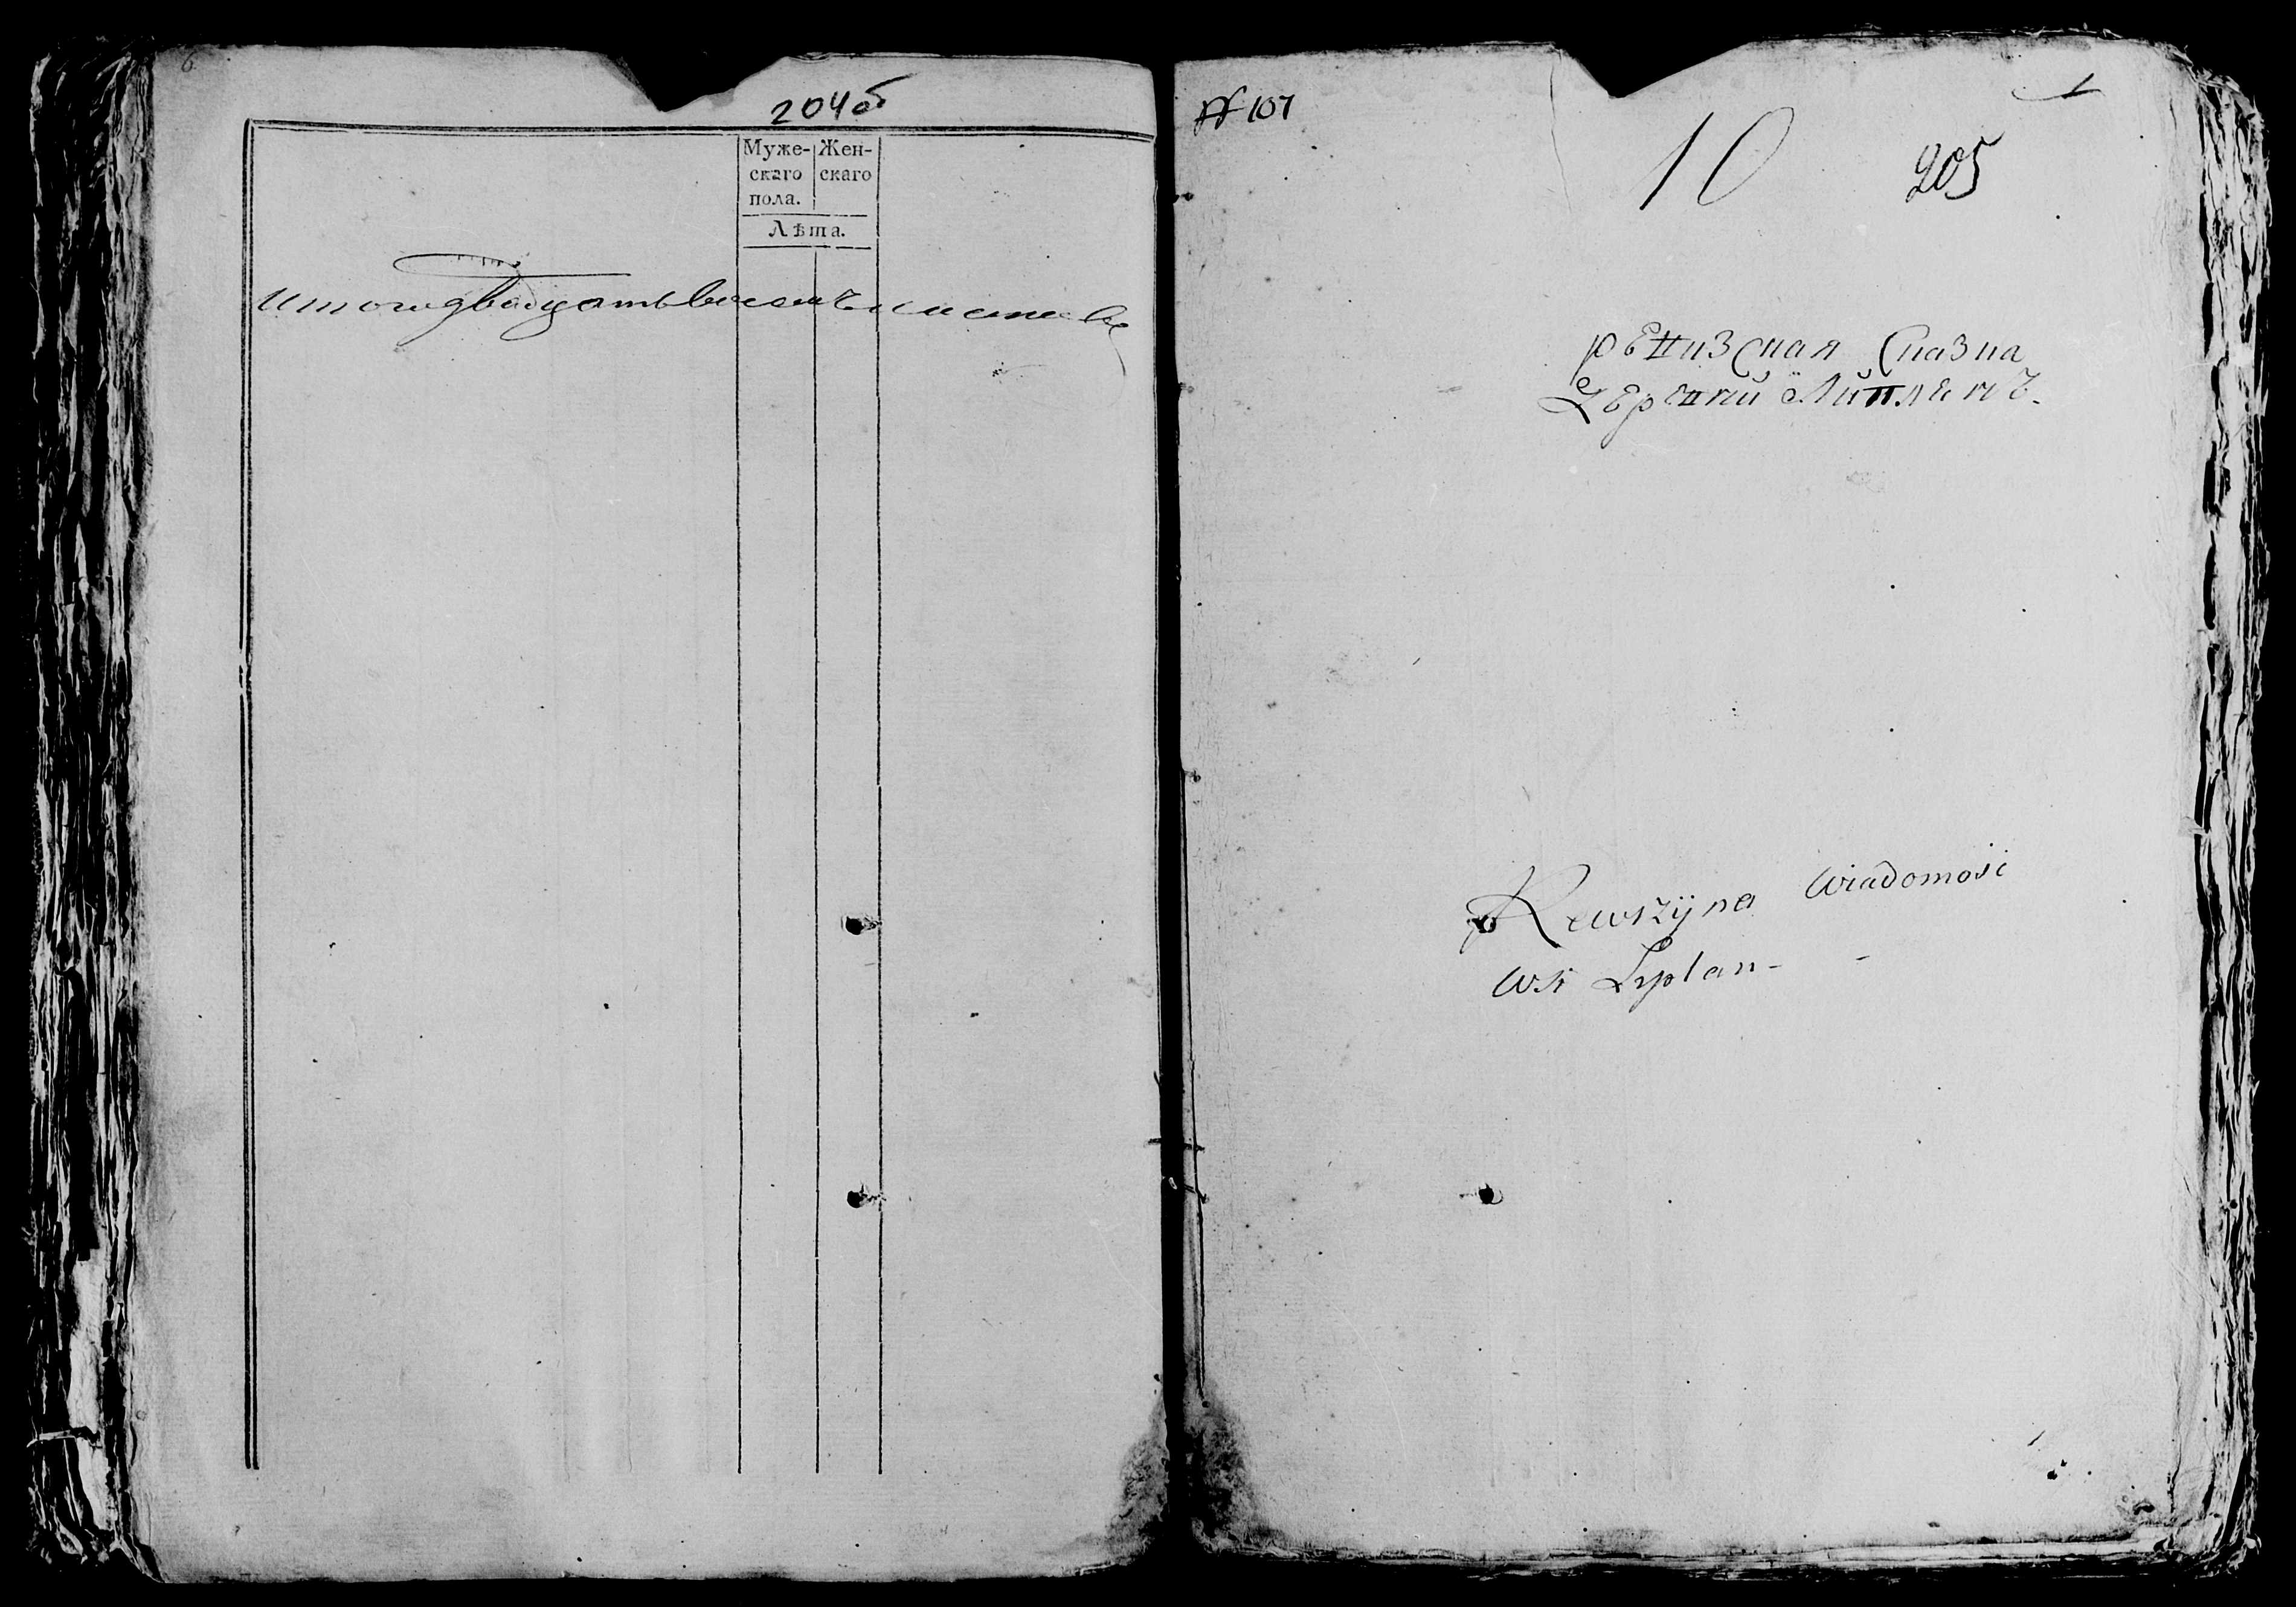 6
204об
Муже- Жен-
скаго скаго
пола.
Лѣта.
итого двадцать восемь листовъ
№ 107
1
10
205
ревизская Сказка
деревни Липлянъ.
Rewizyjna Wiadomość
wsi Lyplan -